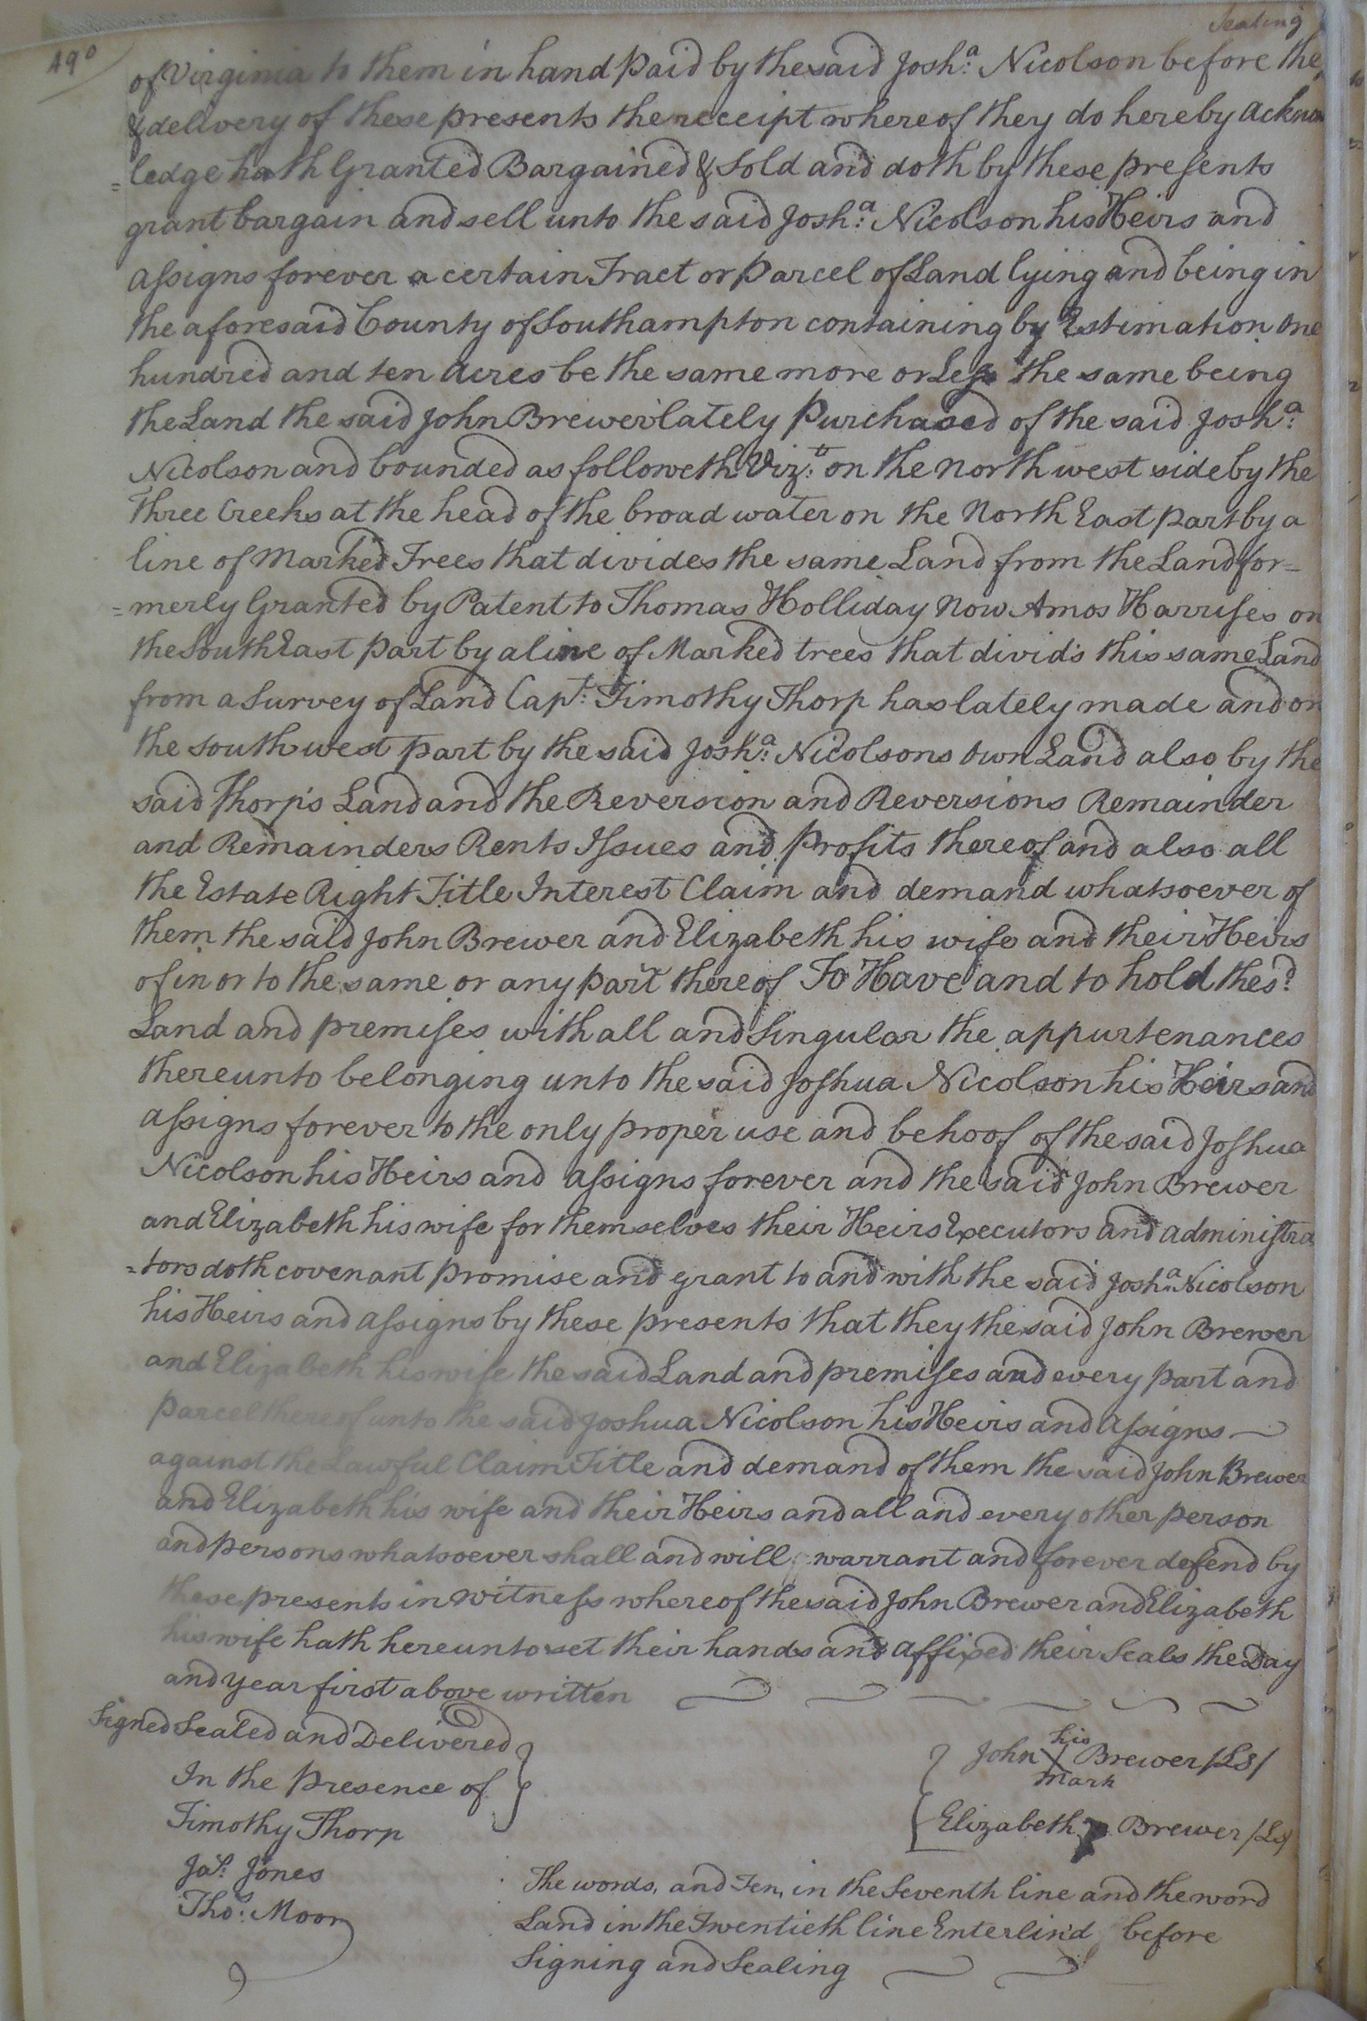 490
Sealing
of Virginia to them in hand paid by the said Josh.a Nicolson before the
& delivery of these presents the receipt whereof they do hereby Acknow
=ledge hath Granted Bargained & Sold and doth by these presents
grant bargain and sell unto the said Josh.a Nicolson his Heirs and
assigns forever a certain Tract or parcel of Land lying and being in
the aforesaid County of Southampton containing by Estimation One
hundred and ten Acres be the same more or Less the same being
the Land the said John Brewer lately purchased of the said Josh.a
Nicolson and bounded as followeth Viz.t on the north west side by the
Three Creeks at the head of the broad water on the North East part by a
line of Marked Trees that divides the same Land from the Land for=
=merly Granted by Patent to Thomas Holliday Now Amos Harrises on
the South East part by a line of Marked trees that divids this same Land
from a Survey of Land Cap.t Timothy Thorp has lately made and on
the southwest part by the said Josh.a Nicolsons own Land also by the
said Thorp's Land and the Reversion and Reversions Remainder
and Remainders Rents Issues and profits thereof and also all
the Estate Right Title Interest Claim and demand whatsoever of
them the said John Brewer and Elizabeth his wife and their Heirs
of in or to the same or any part thereof To Have and to hold the s.d
Land and premises with all and Singular the appurtenances
thereunto belonging unto the said Joshua Nicolson his Heirs and
assigns forever to the only proper use and behoof of the said Joshua
Nicolson his Heirs and assigns forever and the said John Brewer
and Elizabeth his wife for themselves their Heirs Executors and administra
=tors doth covenant promise and grant to and with the said Josh.a Nicolson
his Heirs and assigns by these presents that they the said John Brewer
and Elizabeth his wife the said Land and premises and every part and
parcel thereof unto the said Joshua Nicolson his Heirs and assigns
against the Lawful Claim Title and demand of them the said John Brewer
and Elizabeth his wife and their Heirs and all and every other person
and persons whatsoever shall and will warrant and forever defend by
these presents in witness whereof the said John Brewer and Elizabeth
his wife hath hereunto set their hands and affixed their Seals the Day
and year first above written
Signed Sealed and Delivered
In the presence of
Timothy Thorp
Ja.s Jones
Tho.s Moor
his
John X Brewer /LS/
mark
Elizabeth Brewer /LS/
The words, and Ten, in the Seventh line and the word
Land in the Twentieth line Enterlin'd before
Signing and Sealing